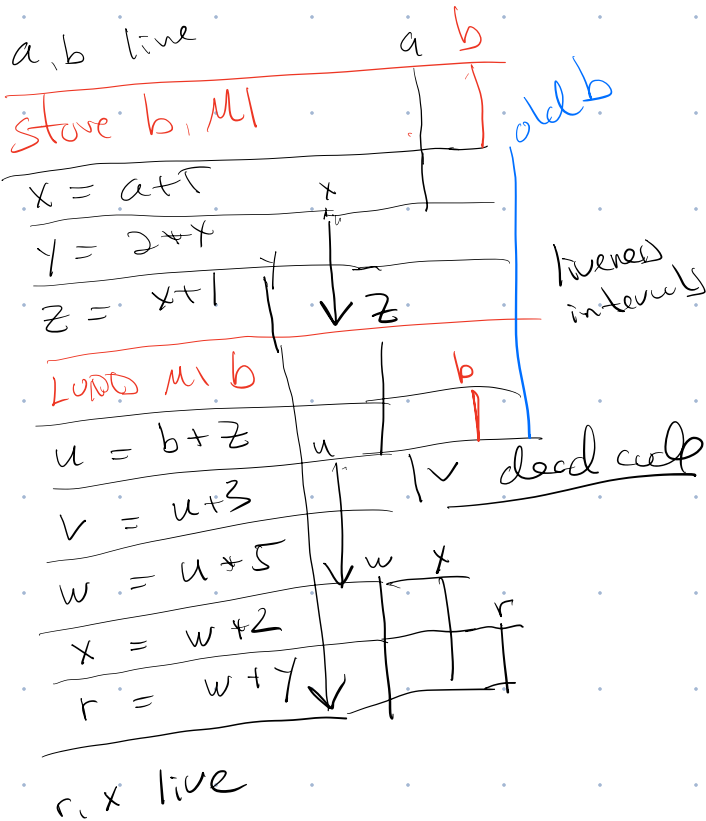 a, b live a b
store b, M1
old b
x = a+5 x
y = 2*x
y
z = x+1 z
liveness
intervals
LOAD M1 b b
u = b+z u
v dead code
v = u+3
w = u*5 w x
x = w*2 r
r = w+y
r, x live